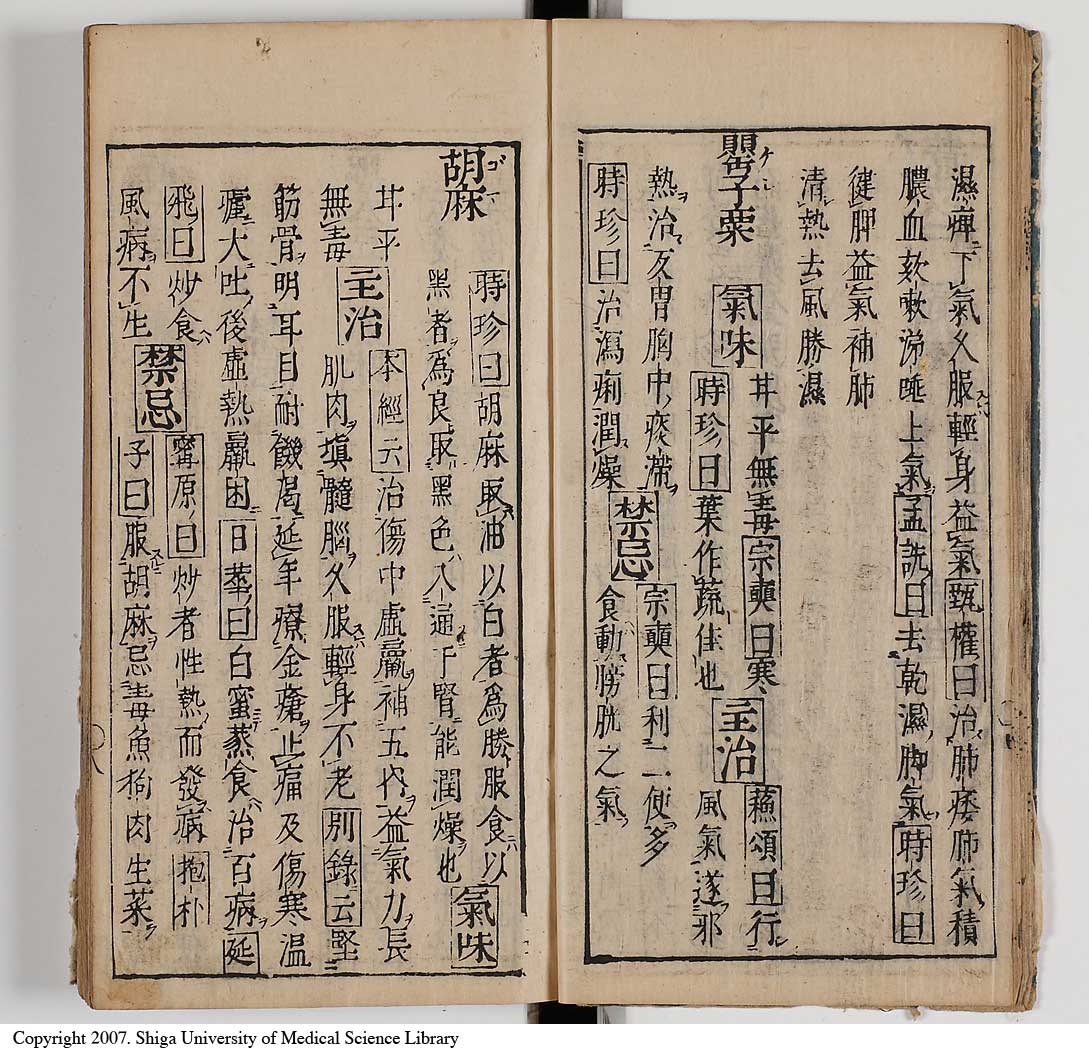 濕痺下氣久服輕身益氣甄權曰治肺痿肺氣積
膿血欬嗽涕唾上氣孟詵曰去乾濕脚氣時珍曰
健脾益氣補肺
清熱去風勝濕
罌子粟 氣味 甘平無毒宗奭曰寒 主治 蘓頌曰行
時珍曰葉作蔬佳也 風氣遂邪
熱治反胃胸中痰滞
時珍曰治瀉痢潤燥 禁忌 宗奭曰利二便多
食動膀胱之氣
胡麻 時珍曰胡麻取油以白者爲勝服食以
黑者爲良取黑色入通于腎能潤燥也 氣味
甘平
無毒 主治 本經云治傷中虛羸補五内益氣力長
肌肉塡髓腦久服輕身不老别錄云堅
筋骨明耳目耐饑渇延年療金瘡止痛及傷寒温
瘧大吐後虛熱羸困日華曰白蜜蒸食治百病延
飛曰炒食
風病不生 禁忌 寗原曰炒者性熱而發病抱朴
子曰服胡麻忌毒魚狗肉生菜
Copyright 2007. Shiga University of Medical Science Library